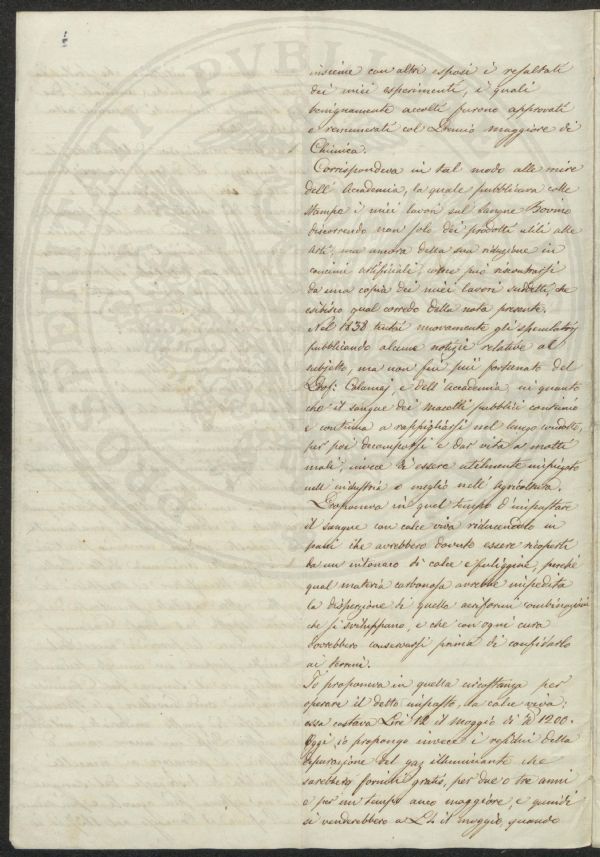 insieme con altri esposi i resultati
dei miei esperimenti, i quali
benignamente accolti furono approvati
e remunerati col Premio maggiore di
Chimica.
Corrispondeva in tal modo alle mire
dell' Accademia, la quale pubblicava colle
stampe i miei lavori sul sangue Bovino
discorrendo non solo dei prodotti utili alle
Arti, ma ancora della sua riduzione in
concimi artificiali, come può riscontrarsi
da una copia dei miei lavori suddetti, che
esibisco qual corredo della nota presente.
Nel 1838 tentai nuovamente gli speculatori
pubblicando alcune notizie relative al
subjetto, ma non fui più fortunato del
Prof: Calamaj, e dell' Accademia, in quanto
chè il sangue dei macelli pubblici continuò
e continua a rappigliarsi nel luogo
per poi decomporsi e dar vita a molti
mali, invece di essere utilmente impiegato
nell' industria o meglio nell' Agricoltura.
Proponeva in quel tempo d' impastare
il sangue con calce viva riducendolo in
pani che avrebbero dovuto essere ricoperti
da un intonaco di calce e fuliggine, perchè
qual materia carbonosa avrebbe impedita
la dispersione di quelle aeriformi combinazioni
che si sviluppano, e che con ogni cura
dovrebbero conservarsi prima di confidarlo
ai terreni.
Io proponeva in quella circostanza per
operare il detto impasto, la calce viva:
essa costava Lire 12 il moggio di 1200.
Oggi, io propongo invece i residui della
depurazione del gaz illuminante che
sarebbero forniti gratis, per due o tre anni
e per un tempo anco maggiore, e quindi
si venderebbero a il moggio, quando
PUBLI